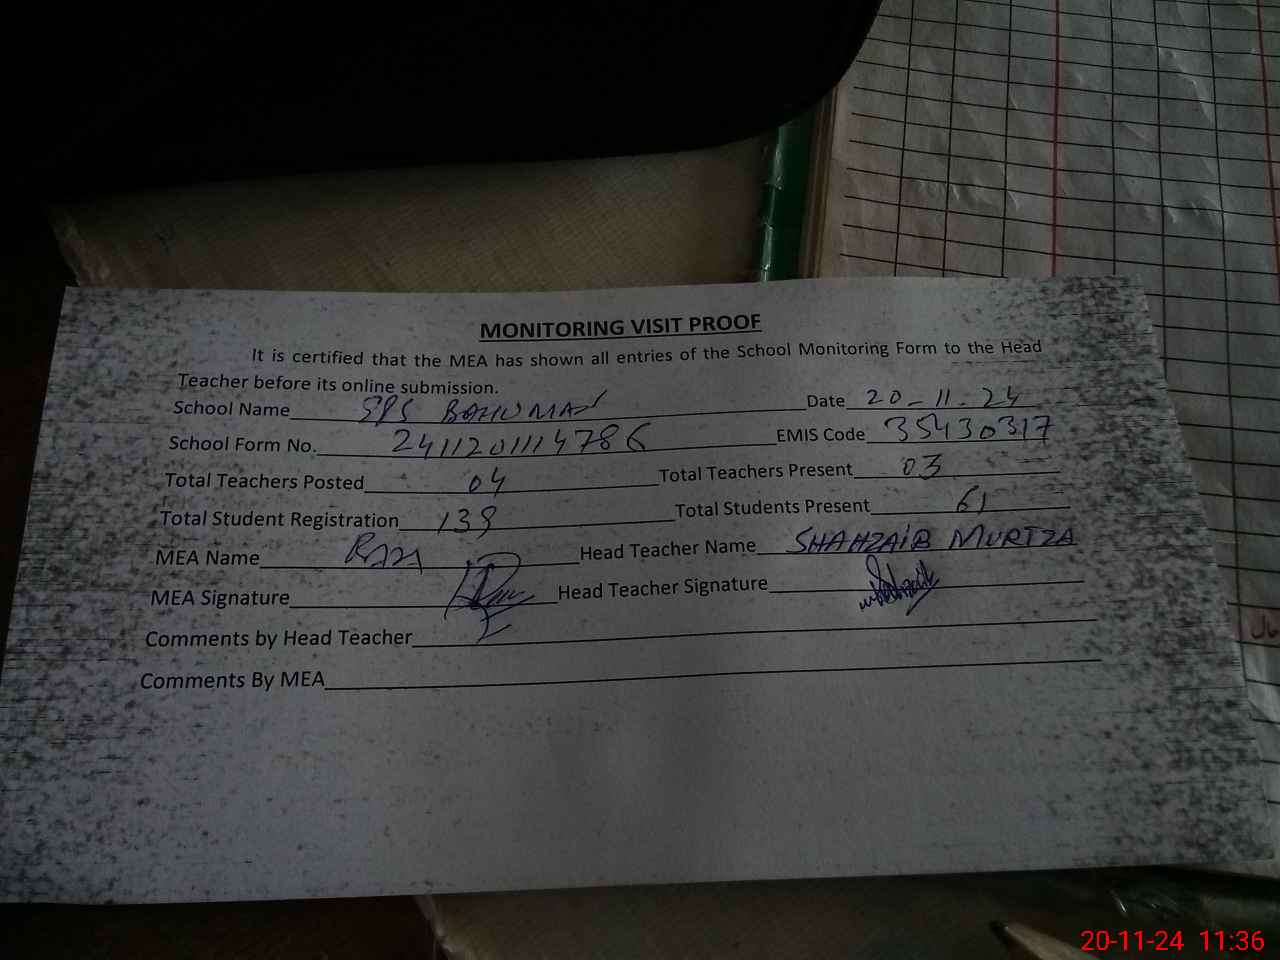 MONITORING VISIT PROOF
It is certified that the MEA has shown all entries of the School Monitoring Form to the Head
Teacher before its online submission.
School Name GPS BAHUMAN Date 20-11-24
School Form No. 2411201114786 EMIS Code 35430317
Total Teachers Posted 04 Total Teachers Present 03
Total Student Registration 139 Total Students Present 61
MEA Name Raza Head Teacher Name SHAHZAIB MURTZA
MEA Signature Head Teacher Signature
Comments by Head Teacher
Comments By MEA
20-11-24 11:36